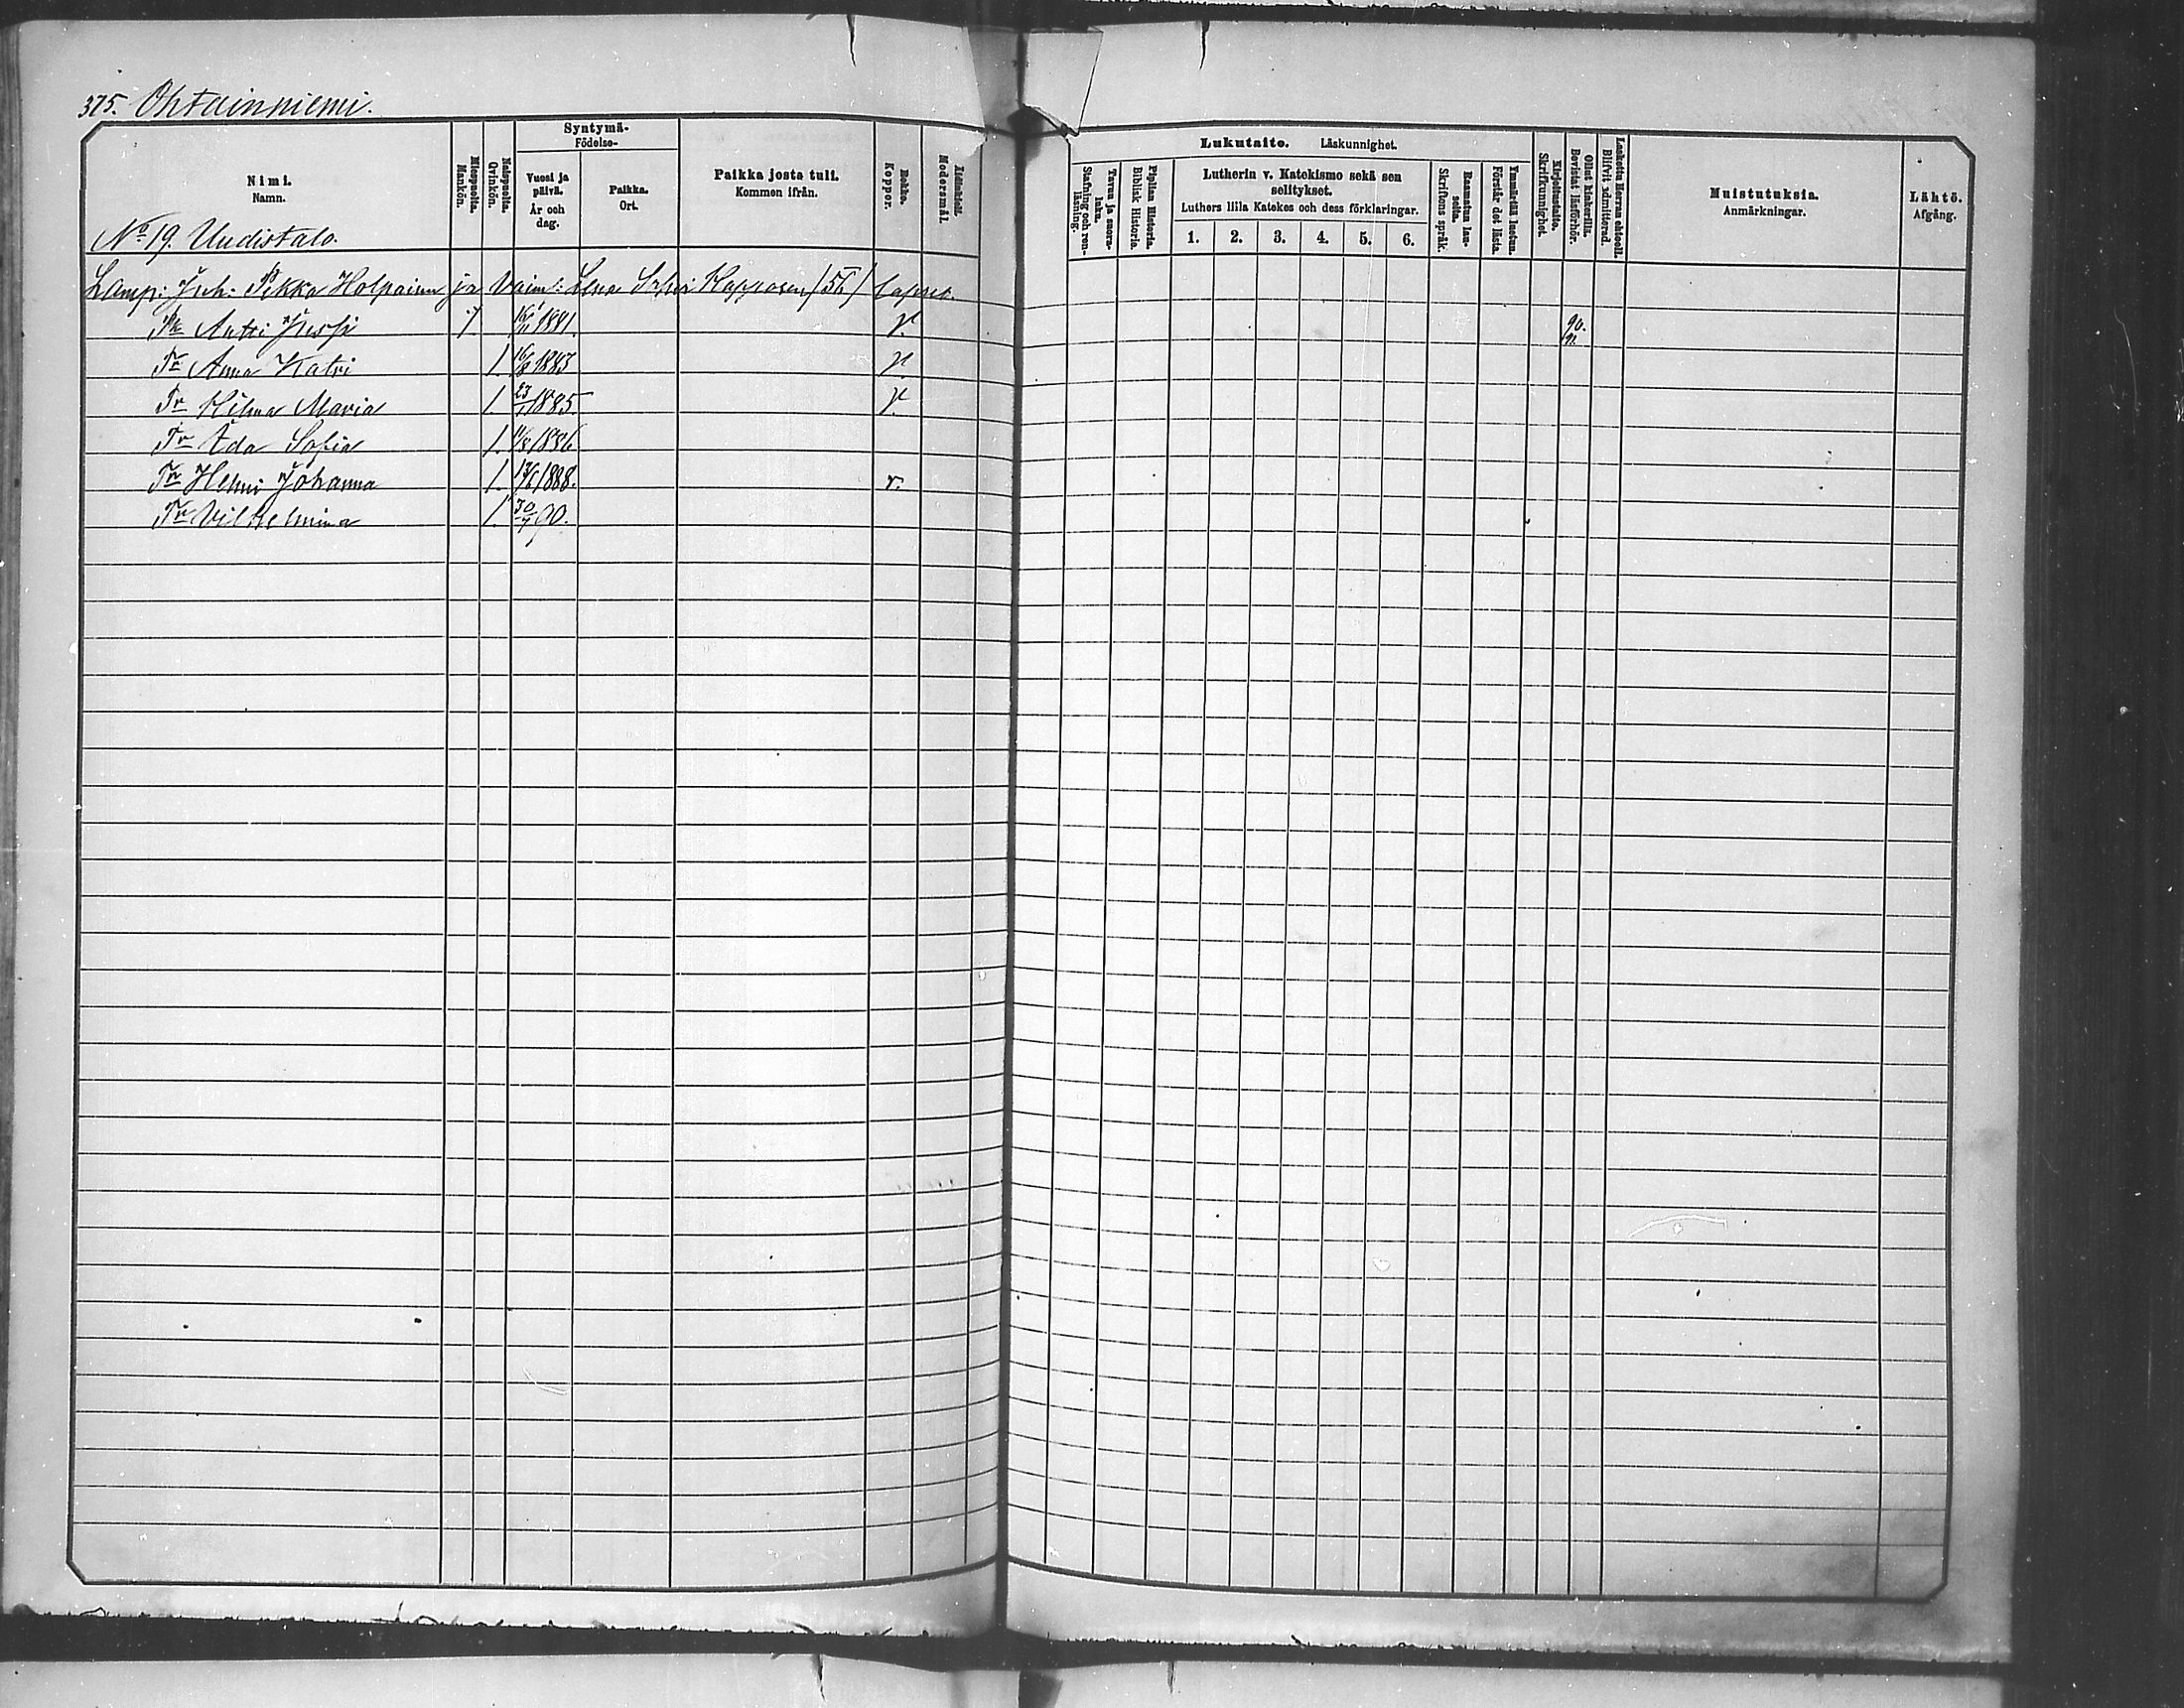 375. Ohtainniemi.
Nimi.
Namn.
Miespuolta.
Mankön.
Naispuolta.
Qvinkön.
Syntymä-
Födelse-
Vuosi ja päivä.
År och dag.
Paikka.
Ort.
Paikka josta tuli.
Kommen ifrån.
Rokko.
Koppor.
Äidinkieli.
Modersmål.
Lukutaito. Läskunnighet.
Tavuu ja suora-luku.
Stafning och ren-läsning.
Piplian Historia.
Biblisk Historia.
Lutherin v. Katekismo sekä sen selitykset.
Luthers lilla Katekes och dess förklaringar.
1. 2. 3. 4. 5. 6.
Raamatun lau-seita.
Skriftens språk.
Ymmärtää luetun.
Förstår det lästa.
Kirjoitustaito.
Skrifkunnighet.
Ollut kinkerillä.
Bevistat läsförhör.
Laskettu Herran ehtool.
Blifvit admitterad.
Muistutuksia.
Anmärkningar.
Lähtö.
Afgång.
No 19. Uudistalo.
Lamp: Juh: Pekka Holpainen ja Vaim: Lena Sofia Kapposen /56/ lapset.
Pk Antti Jussi 1 1881. r. 90. 91.
Tr Anna Katri 1. 16/8 1883 r.
Tr Hilma Maria 1. 23/1 1885. r.
Tr Ida Sofia 1. 11/8 1886.
Tr Helmi Johanna 1. 1888. r.
Tr Vilhelmina 1. 30/7 90.